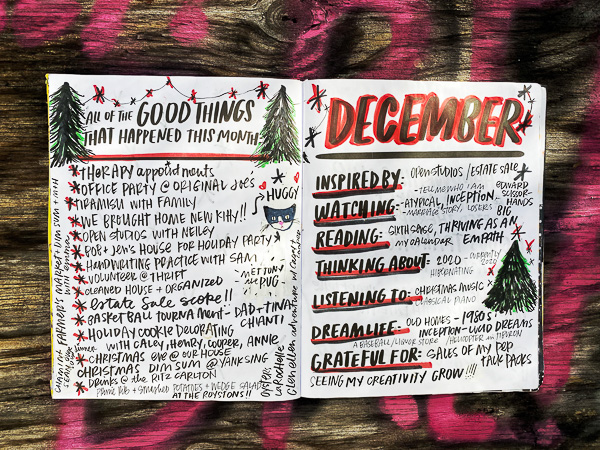 ALL OF THE GOOD THINGS
THAT HAPPENED THIS MONTH
THERAPY appointments
OFFICE PARTY @ ORIGINAL JOES
TIRAMISU WITH FAMILY
WE BROUGHT HOME NEW KITTY!!
HUGGY
OPEN STUDIOS WITH NELLEY
BOB + JEN'S HOUSE FOR HOLIDAY PARTY
HANDWRITING PRACTICE WITH SAM
VOLUNTEER @ THRIFT
- MET TONY the PUG -
CLEANED HOUSE + ORGANIZED
estate sale score!!
BASKETBALL TOURNAMENT - DAD + TINA'S
CHIANTI
HOLIDAY COOKIE DECORATING
WITH CALEY, HENRY, COOPER, ANNIE
CHRISTMAS EVE @ OUR HOUSE
CHRISTMAS DIM SUM @ YANK SING
DRINKS @ the RITZ CARLTON
PRIME RIB + SMASHED POTATOES + WEDGE SALADS
AT THE ROYSTONS!!
FARMER'S MARKET + DIM SUM
Glen ellen adventure
DECEMBER
INSPIRED BY: OPEN STUDIOS / ESTATE SALE
WATCHING: - TELL ME WHO I AM
- ATYPICAL, INCEPTION, EDWARD SCISSOR-HANDS
- MARRIAGE STORY, LOSERS BIG
READING: SIXTH SAGE, THRIVING AS AN
EMPATH
THINKING ABOUT: 2020 - CURRENTLY 2020
HIBERNATING
LISTENING TO: CHRISTMAS MUSIC
CLASSICAL PIANO
DREAMLIFE: OLD HOMES - 1950s
INCEPTION - WILD DREAMS
A BASEBALL / LIQUOR STORE / HELICOPTER IN TIBURON
GRATEFUL FOR: SALES OF MY PDP
TALK PACKS
SEEING MY CREATIVITY GROW!!!!